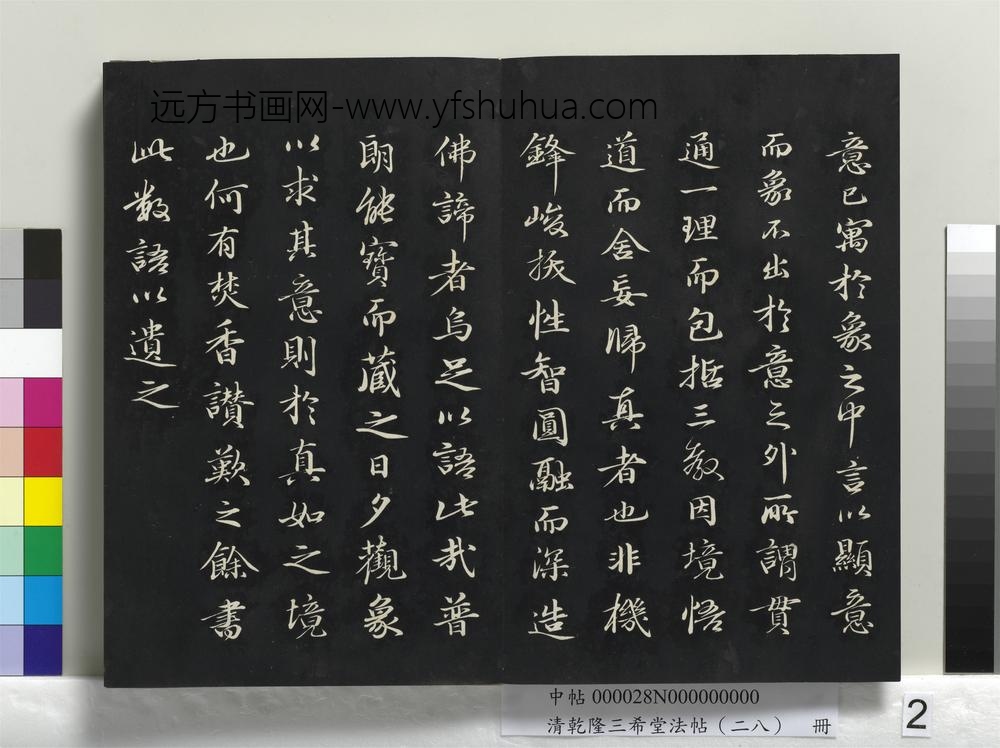 远方书画网-www.yfshuhua.com
意已寓於象之中言以顯意
而象不出於意之外所謂貫
通一理而包括三教因境悟
道而舍妄歸真者也非機
鋒峻拔性智圓融而深造
佛諦者烏足以語此哉普
朗能寶而藏之日夕觀象
以求其意則於真如之境
也何有焚香讃歎之餘書
此數語以遺之
中帖 000028N000000000
清乾隆三希堂法帖（二八） 冊
2